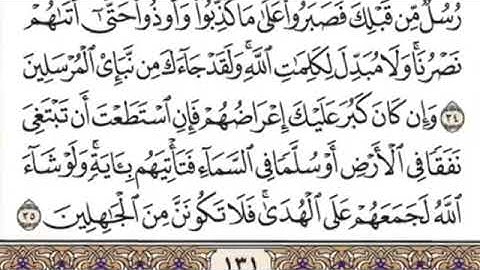 رُسُلٌ مِّن قَبْلِكَ فَصَبَرُوا۟ عَلَىٰ مَا كُذِّبُوا۟ وَأُوذُوا۟ حَتَّىٰٓ أَتَىٰهُمْ
نَصْرُنَا ۚ وَلَا مُبَدِّلَ لِكَلِمَٰتِ ٱللَّهِ ۚ وَلَقَدْ جَآءَكَ مِن نَّبَإِى۟ ٱلْمُرْسَلِينَ
٣٤ وَإِن كَانَ كَبُرَ عَلَيْكَ إِعْرَاضُهُمْ فَإِنِ ٱسْتَطَعْتَ أَن تَبْتَغِىَ
نَفَقًا فِى ٱلْأَرْضِ أَوْ سُلَّمًا فِى ٱلسَّمَآءِ فَتَأْتِيَهُم بِـَٔايَةٍ ۚ وَلَوْ شَآءَ
ٱللَّهُ لَجَمَعَهُمْ عَلَى ٱلْهُدَىٰ ۚ فَلَا تَكُونَنَّ مِنَ ٱلْجَٰهِلِينَ ٣٥
١٣١